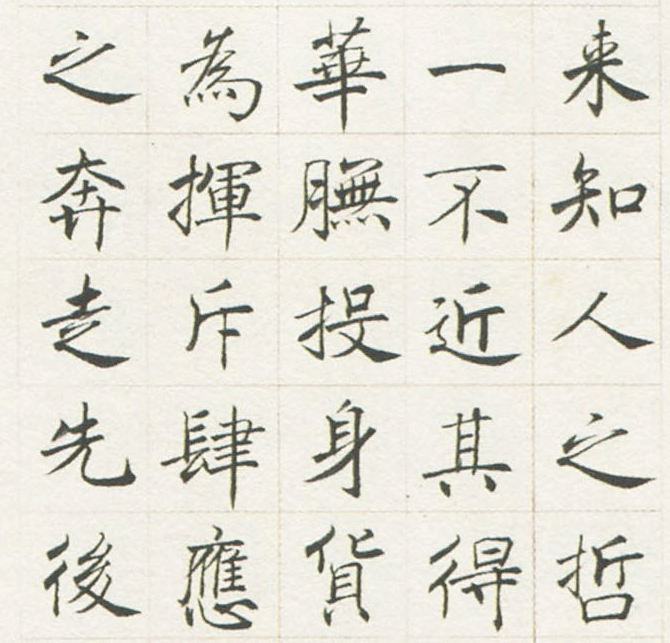 来知人之哲
一不近其得
華膴投身貨
為揮斥肆應
之奔走先後